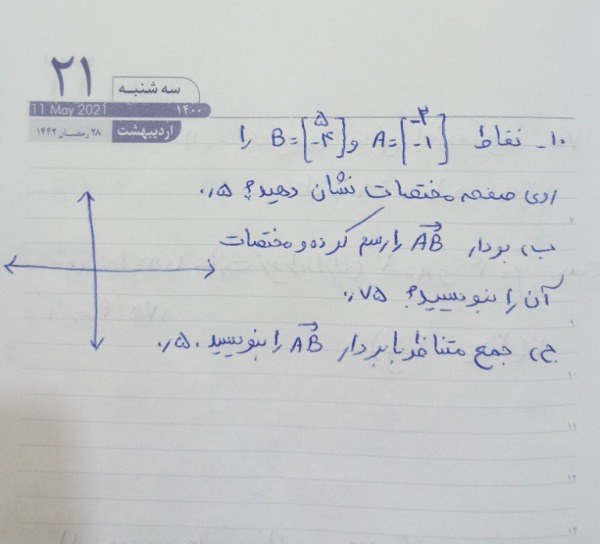 ۲۱
سه شنبه
11 May 2021
۱۴۰۰
اردیبهشت
۲۸ رمضان ۱۴۴۲
۱۰_ نقاط A=[-۲ -۱] و B=[۵ -۴] را
روی صفحه مختصات نشان دهید؟ ۰/۵
ب) بردار AB را رسم کرده و مختصات
آن را بنویسید؟ ۰/۷۵
ج) جمع متناظر با بردار AB را بنویسید ۰/۵
۱۱
۱۲